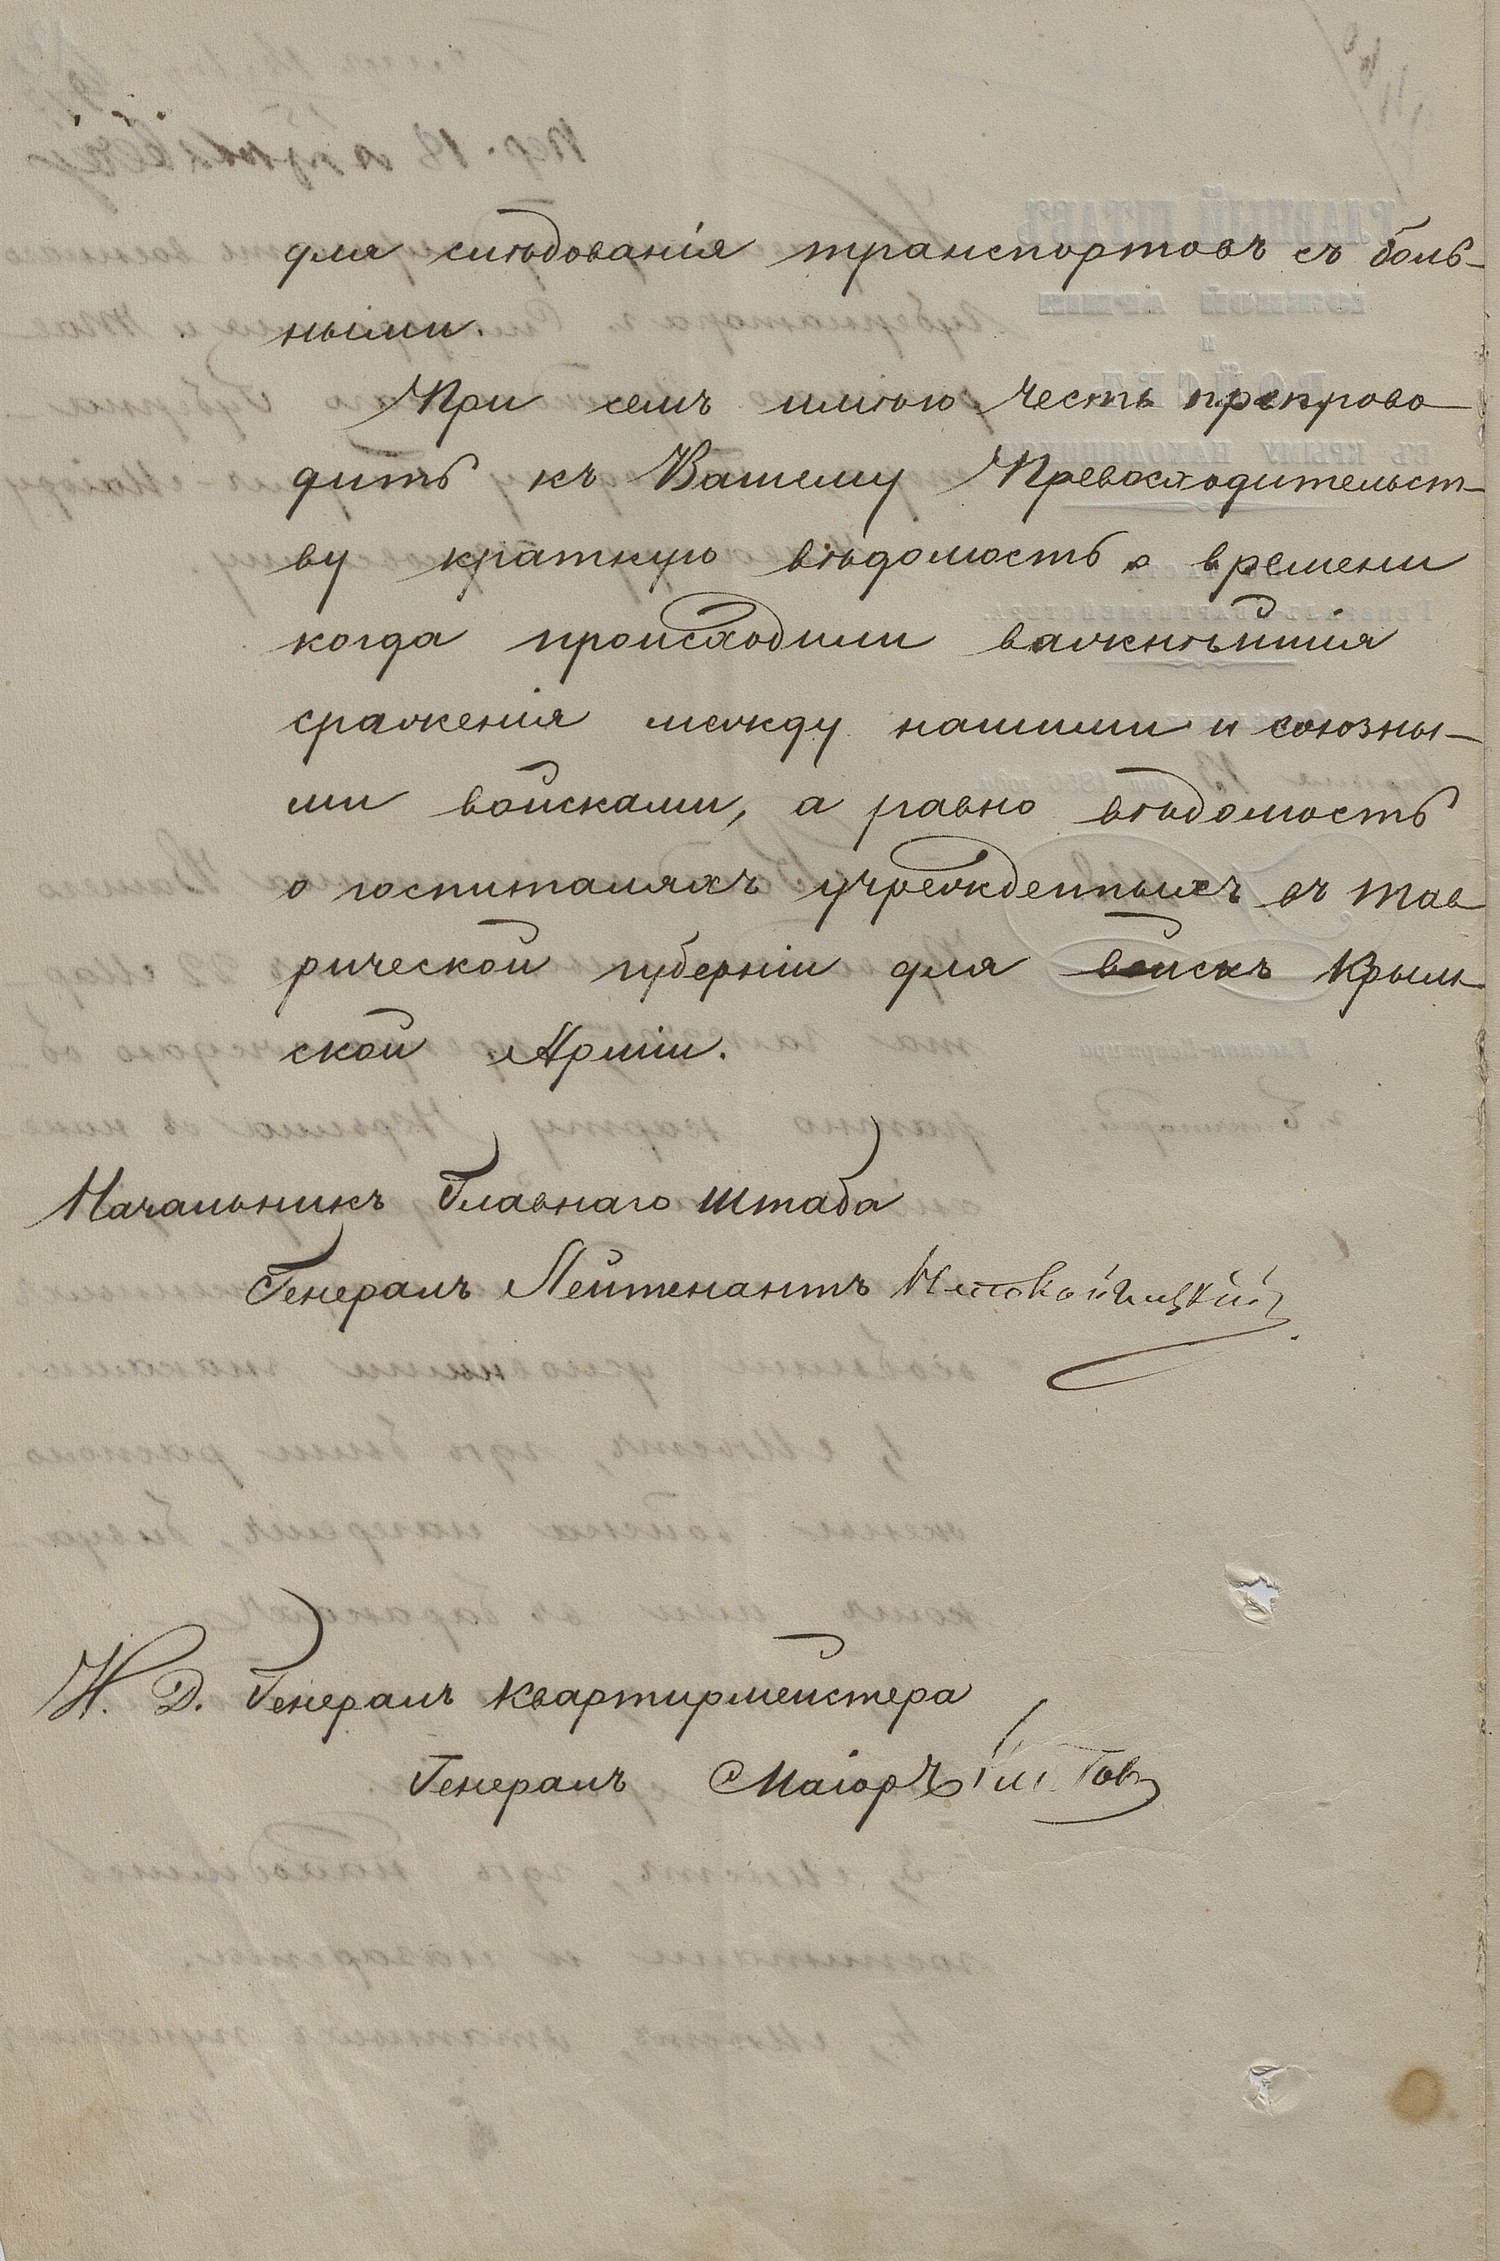 для слѣдованія транспортовъ съ боль-
ными.
При семъ имѣю честь препрово-
дить къ Вашему Превосходительст-
ву краткую вѣдомость о времени
когда происходили важнѣйшія
сраженія между нашими и союзны-
ми войсками, а равно вѣдомость
о госпиталяхъ учрежденныхъ въ Тав-
рической губерніи для войскъ Крым-
ской Арміи.
Начальникъ Главнаго Штаба
Генералъ Лейтенантъ
И. Д. Генералъ Квартирмейстера
Генералъ Маіоръ